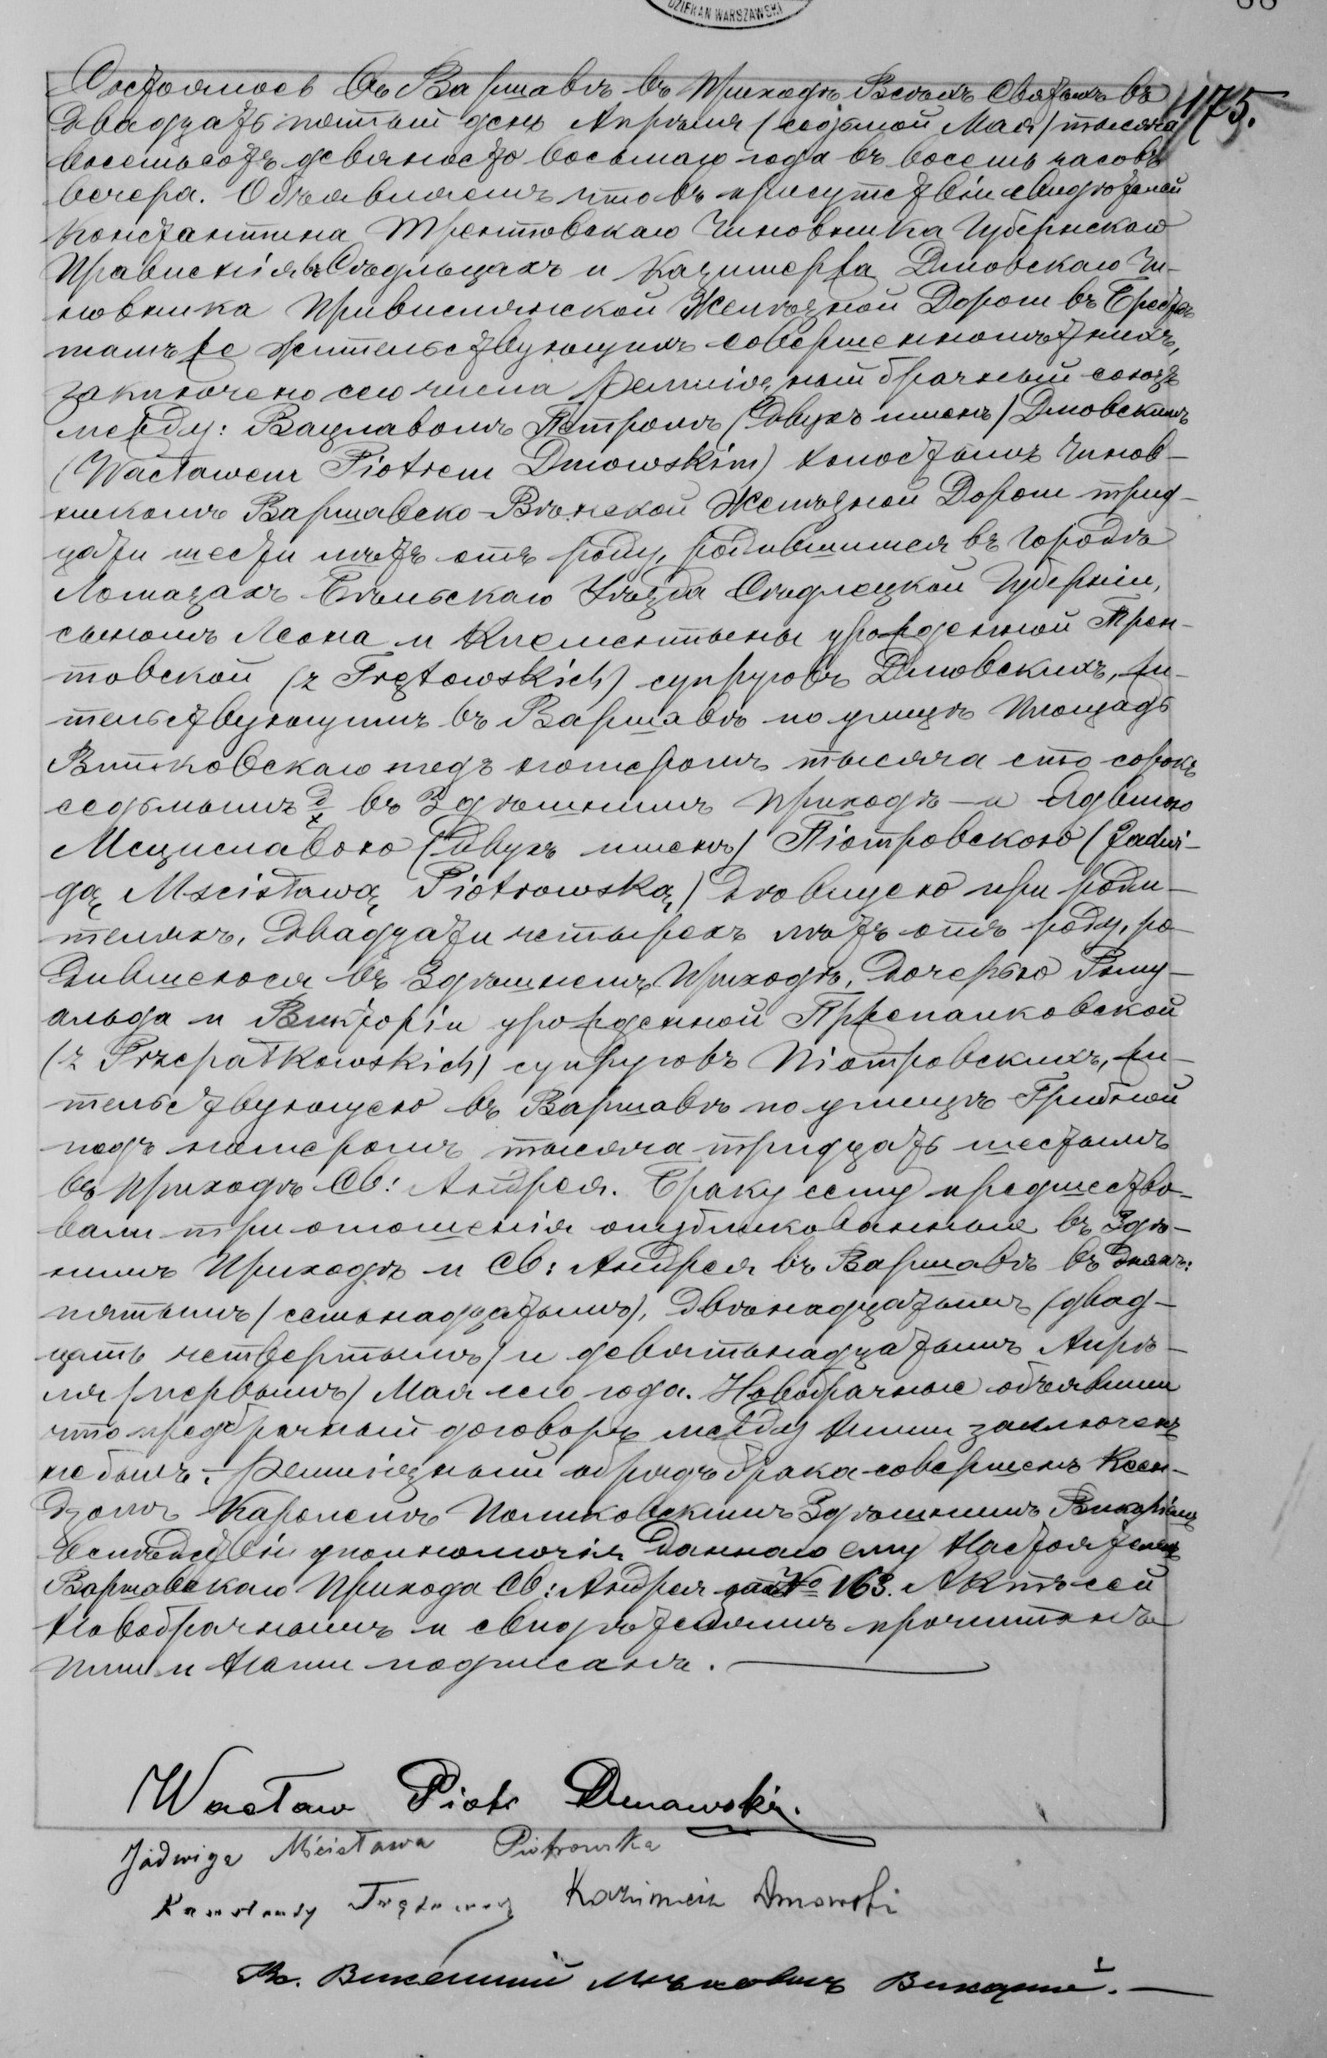 DZIEKAN WARSZAWSKI
88
175.
Состоялось въ Варшавѣ въ Приходѣ Всѣхъ Святыхъ въ
двадцать пятый день Апрѣля (седьмой Мая) тысяча
восемьсотъ девяносто восьмаго года въ восемь часовъ
вечера. Объявляемъ что въ присутствіи свидѣтелей
Константина Трентовскаго Чиновника Губернскаго
Правленія въ Сѣдльцахъ и Казимержа Дмовскаго Чи-
новника Привислянской Желѣзной Дороги въ Брестѣ
тамъ же жительствующихъ совершеннолѣтнихъ,
заключено сего числа религіозный брачный союзъ
между: Вацлавомъ Петромъ (двухъ именъ) Дмовскимъ
(Wacławem Piotrem Dmowskim) холостымъ Чинов-
никомъ Варшавско-Вѣнской Желѣзной Дороги трид-
цати шести лѣтъ отъ роду, родившимся въ городѣ
Ломазахъ Бѣльскаго Уѣзда Сѣдлецкой Губерніи,
сыномъ Леона и Клементыны урожденной Трен-
товской (z Trętowskich) супруговъ Дмовскихъ, жи-
тельствующимъ въ Варшавѣ по улицѣ Площадь
Витковскаго подъ номеромъ тысяча сто сорокъ
седьмымъ д въ Здѣшнемъ Приходѣ — и Ядвигою
Мециславою (двухъ именъ) Піотровскою (Jadwi-
gą Mscisławą Piotrowską) дѣвицею при роди-
теляхъ, двадцати четырехъ лѣтъ отъ роду, ро-
дившеюся въ Здѣшнемъ Приходѣ, дочерью Рому-
альда и Викторіи урожденной Пржепалковской
(z Przepałkowskich) супруговъ Піотровскихъ, жи-
тельствующею въ Варшавѣ по улицѣ Грибной
подъ номеромъ тысяча тридцать шестымъ
въ Приходѣ Св: Андрея. Браку сему предшество-
вали три оглашенія опубликованныя въ Здѣ-
шнемъ Приходѣ и Св: Андрея въ Варшавѣ въ дняхъ:
пятымъ (семнадцатымъ), двѣнадцатымъ (двад-
цать четвертымъ) и девятнадцатымъ Апрѣ-
ля (первымъ) Мая сего года. Новобрачные объявили
что предбрачный договоръ между ними заключенъ
не былъ. Религіозный обрядъ брака совершенъ Ксен-
дзомъ Каролемъ Здѣшнимъ Викаріемъ
вслѣдствіи уполномочія даннаго ему Настоятелемъ
Варшавскаго Прихода Св: Андрея № 163. Актъ сей
Новобрачнымъ и свидѣтелямъ прочитанъ
ими и Нами подписанъ.
Wacław Piotr Dmowski.
Jadwiga Mścisława Piotrowska
Konstanty Trętowski Kazimierz Dmowski